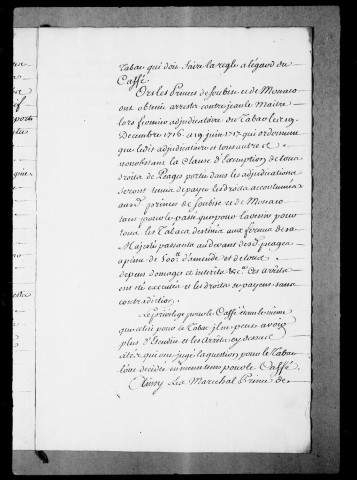 Tabac qui doit faire la regle a legard du
Caffé.
Or les Princes de Soubise et de Monaco
ont obtenu arrests contre jean le Maitre
lors fermier adjudicataire du Tabac le 19
Decembre 1716. et 19 juin 1717 qui ordonnent
que ledit adjudicataire et tous autres
nonobstant la Clause d'Exemption de tous
droits de Peages portée dans les adjudications
seront tenus de payer les droits accoutumés
auxd. princes de Soubise et de Monaco
tant pour le passé que pour l'avenir pour
tous les Tabacs destinés aux fermes de sa
Majesté passants au devant desd. peages
a peine de 500ᵗᵗ d'amende et de tous
depens domages et interets &c. Ces arrets
ont été executés et les droits se payent sans
contradiction.
Le privilege pour le Caffé étant le même
que celui pour le Tabac il ne peut avoir
plus d'Etendue et les Arrets cy dessus
citez qui ont jugé la question pour le Tabac
l'ont decidée en même tems pour le Caffé.
Aussy le Marechal Prince de